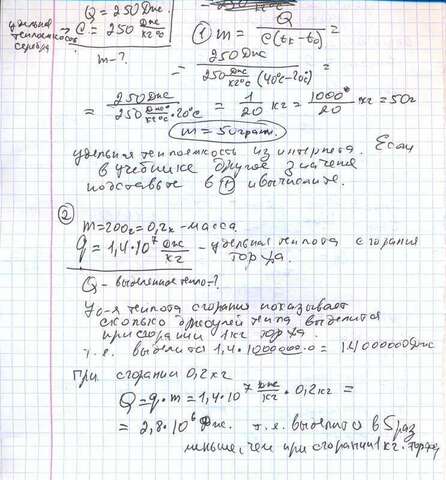 удельная теплоемкость серебра
Q = 250 Дж.
c = 250 Дж/кг°C
m - ?
① m = Q / c(tк - t0) =
= 250 Дж / 250 Дж/кг°C (40°C - 20°C) =
= 250 Дж / 250 Дж/кг°C · 20°C = 1/20 кг = 1000/20 кг = 50г
m = 50 грам.
удельная теплоемкость из интернета. Если
в учебнике другое значение
подставьте в ① и вычислите.
②
m = 200г = 0,2к - масса
q = 1,4·10⁷ Дж/кг - удельная теплота сгорания
торфа.
Q - выделенное тепло - ?
Уд-я теплота сгорания показывает
сколько джоулей тепла выделится
при сгорании 1 кг торфа.
т.е. выделится 1,4·10000000 = 14000000 Дж
При сгорании 0,2 кг
Q = q·m = 1,4·10⁷ Дж/кг · 0,2 кг =
= 2,8·10⁶ Дж. т.е. выделится в 5 раз
меньше, чем при сгорании 1 кг. торфа